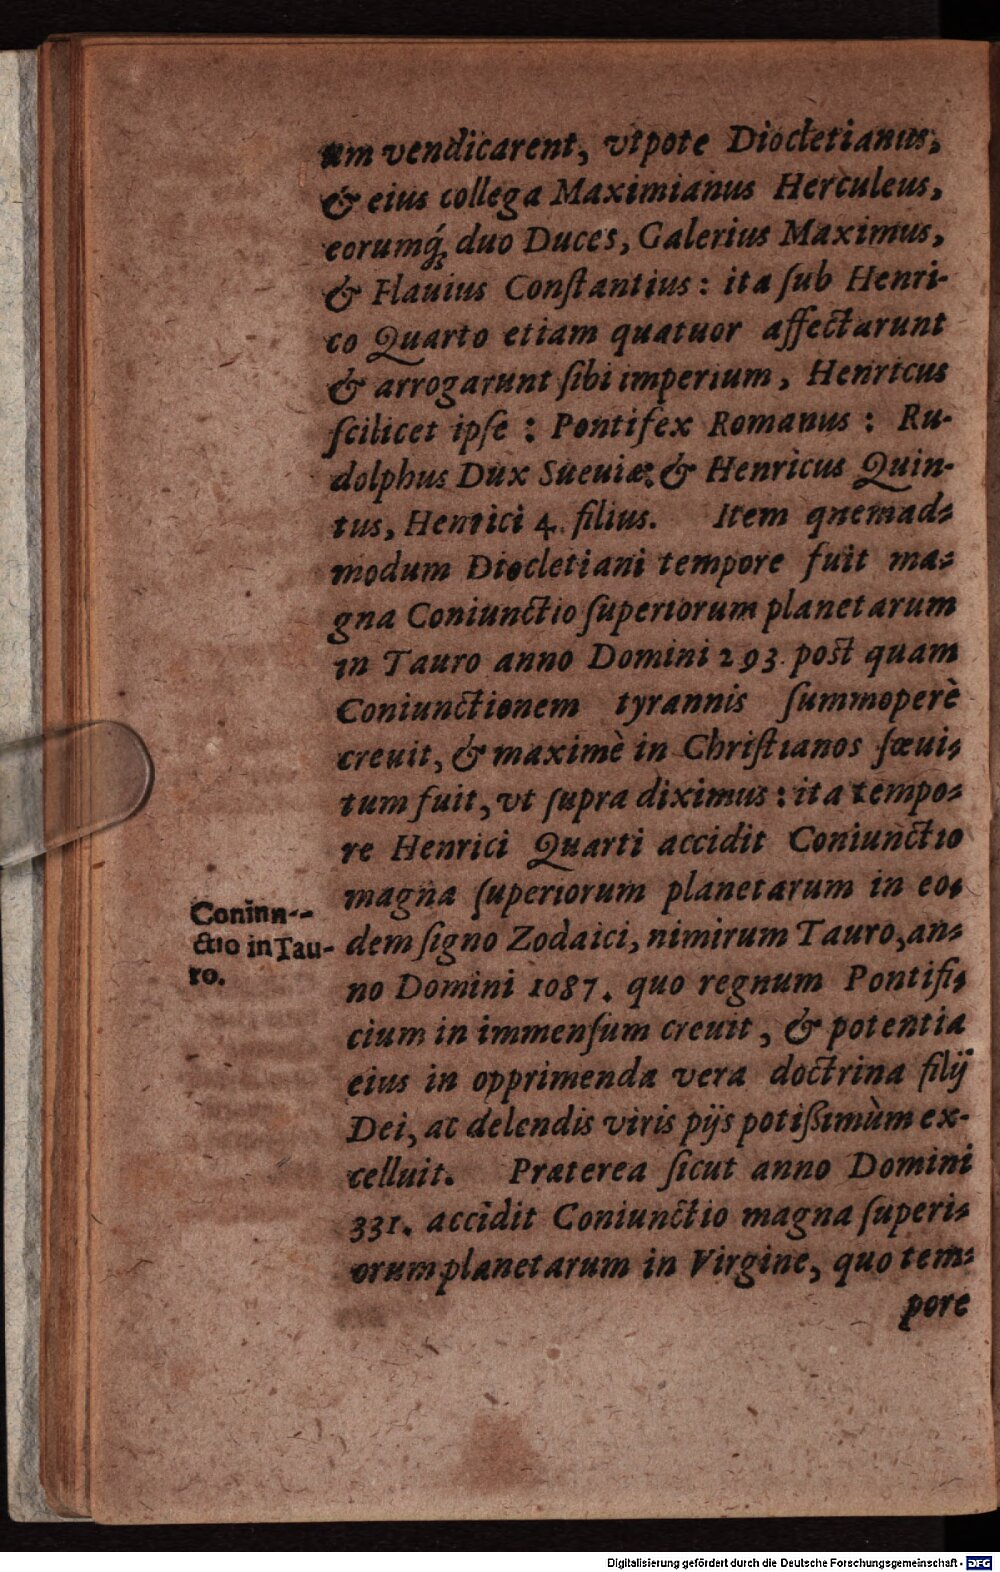 um vendicarent, vtpote Diocletianus,
& eius collega Maximianus Herculeus,
eorumq́; duo Duces, Galerius Maximus,
& Flauius Conſtantius: ita ſub Henri-
co Quarto etiam quatuor affectarunt
& arrogarunt ſibi imperium, Henricus
ſcilicet ipſe: Pontifex Romanus: Ru-
dolphus Dux Sueuiæ: & Henricus Quin-
tus, Henrici 4. filius. Item qnemad-
modum Diocletiani tempore fuit ma-
gna Coniunctio ſuperiorum planetarum
in Tauro anno Domini 293. poſt quam
Coniunctionem tyrannis ſummoperè
creuit, & maximè in Chriſtianos ſœui-
tum fuit, vt ſupra diximus: ita tempo-
re Henrici Quarti accidit Coniunctio
magna ſuperiorum planetarum in eo-
dem ſigno Zodaici, nimirum Tauro, an-
no Domini 1087. quo regnum Pontifi-
cium in immenſum creuit, & potentia
eius in opprimenda vera doctrina filij
Dei, ac delendis viris pijs potiſsimùm ex-
celluit. Praterea ſicut anno Domini
331. accidit Coniunctio magna ſuperi-
orum planetarum in Virgine, quo tem-
pore
Coninn--
ctio in Tau-
ro.
Digitalisierung gefördert durch die Deutsche Forschungsgemeinschaft - DFG